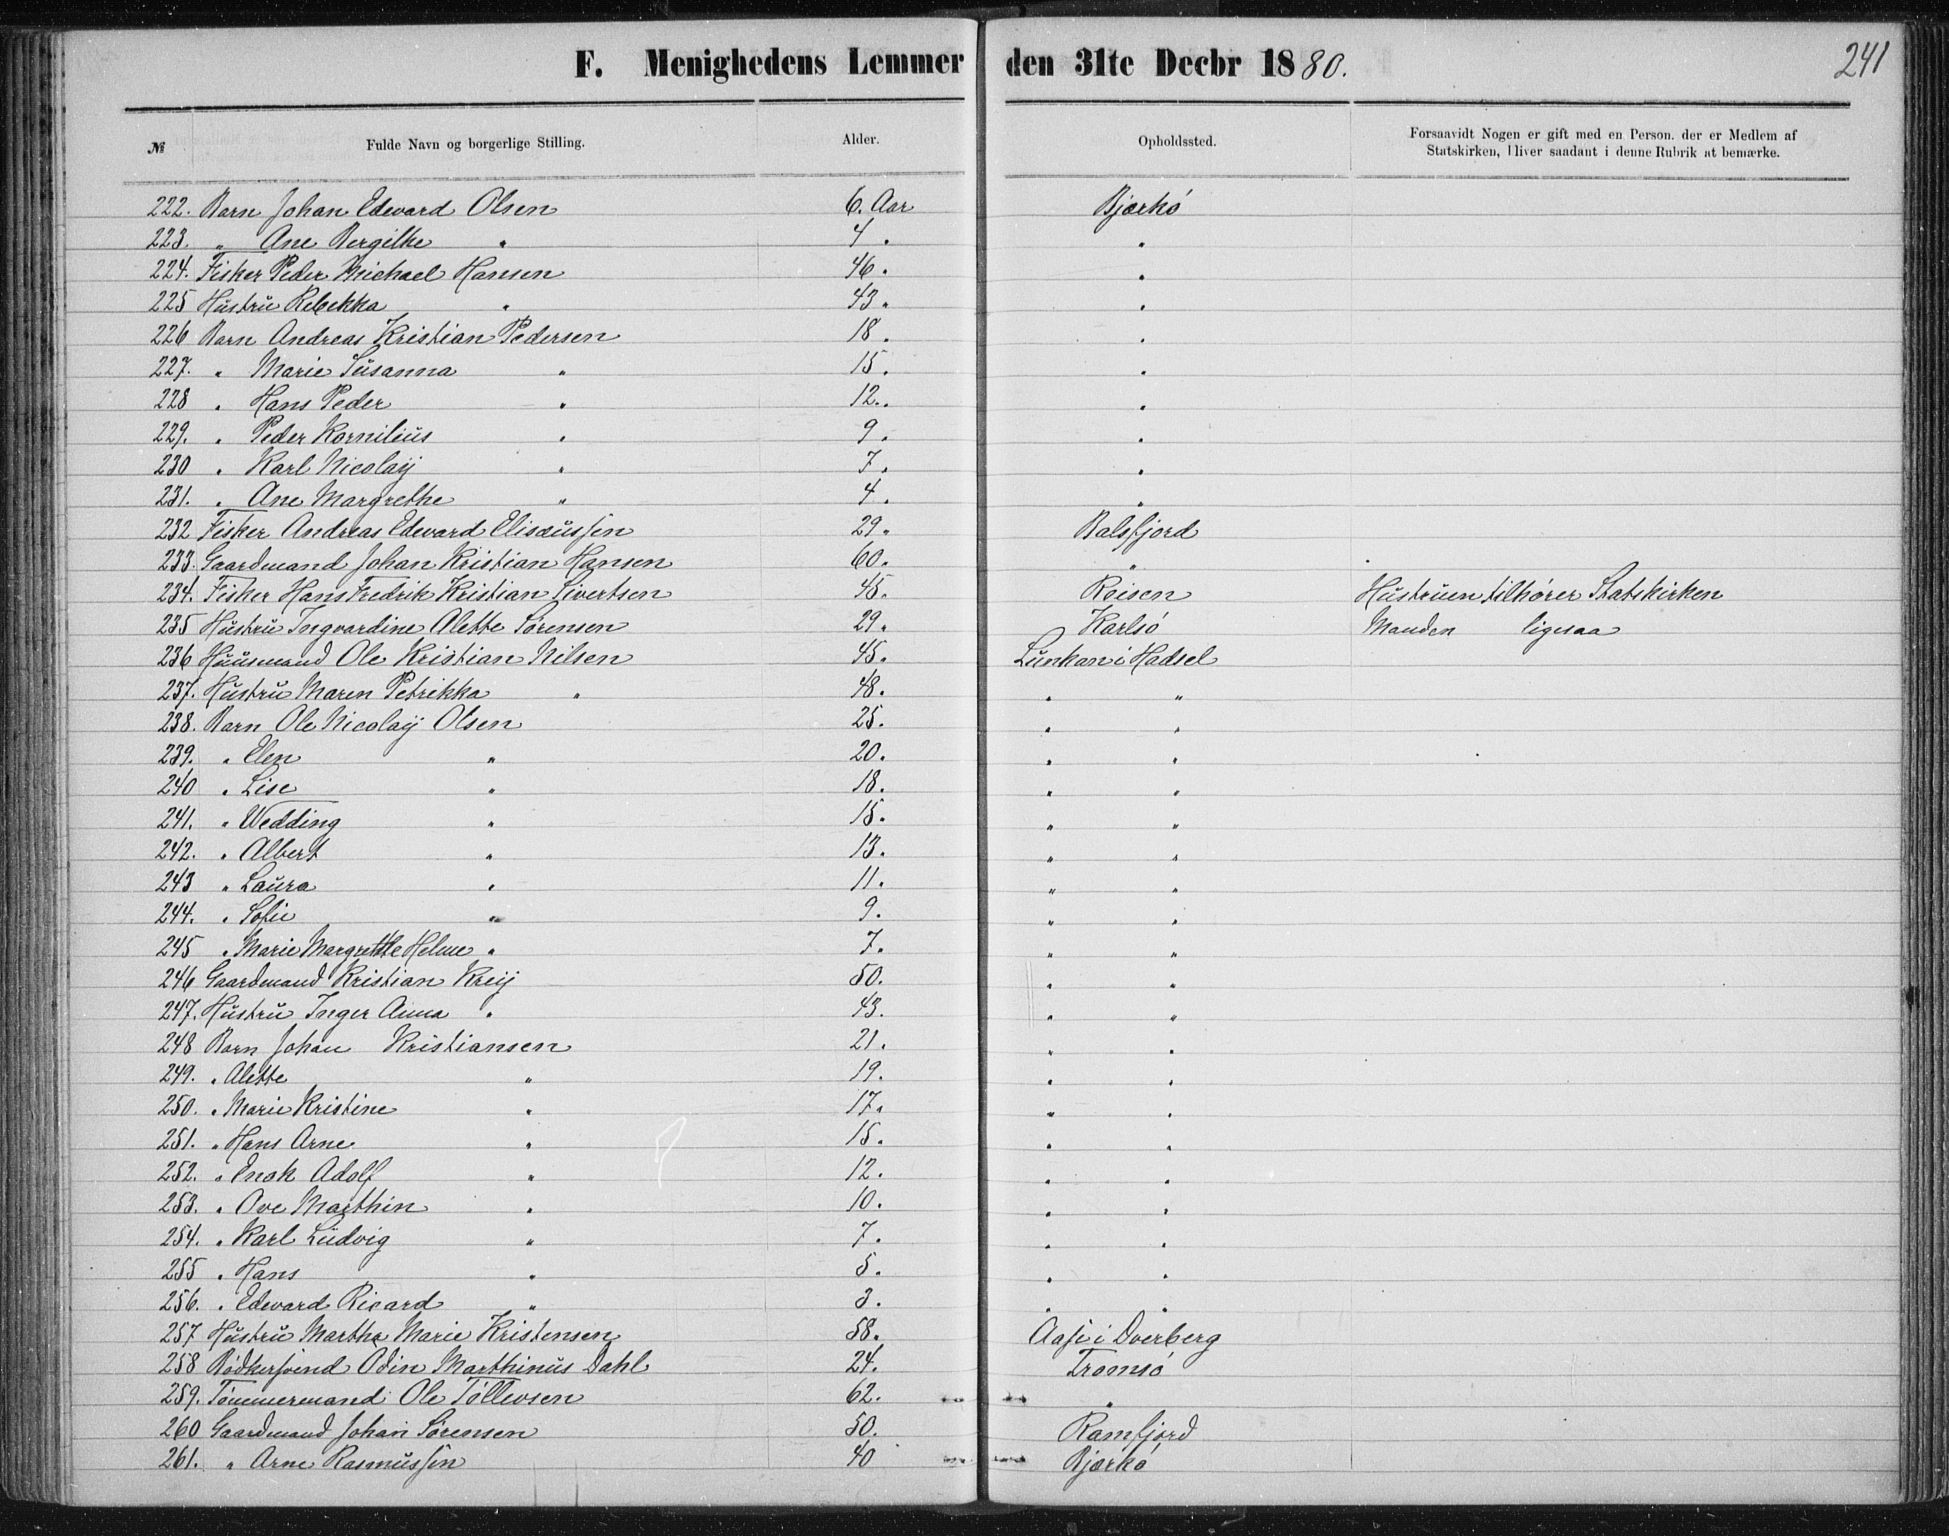 F. Menighedens Lemmer den 31te Decbr 1880. 241
№ Fulde Navn og borgerlige Stilling. Alder. Opholdssted. Forsaavidt Nogen er gift med en Person, der er Medlem af
Statskirken, bliver saadant i denne Rubrik at bemærke.
222. Barn Johan Edevard Olsen 6. Aar Bjærkö
223. " Ane Bergithe " 4 " "
224. Fisker Peder Michael Hansen 46. "
225 Hustru Rebekka " 43. "
226 Barn Andreas Kristian Pedersen 18. "
227. " Marie Susanna " 15. "
228 " Hans Peder " 12. "
229. " Peder Kornilius " 9. "
230 " Karl Nicolaÿ " 7. "
231. " Ane Margrethe " 4. "
232 Fisker Andreas Edevard Elisæussen 29. Balsfjord
233. Gaardmand Johan Kristian Hansen 60. "
234. Fisker Hans Fredrik Kristian Sivertsen 45. Reisen Hustruen tilhører Statskirken
235 Hustru Ingvardine Alette Sørensen 29. Karlsö Manden ligesaa
236 Huusmand Ole Kristian Nilsen 45. Lunkan i Hadsel
237. Hustru Maren Petrikka " 48. " "
238. Barn Ole Nicolaÿ Olsen 25. " "
239. " Elen " 20. " "
240 " Lise " 18. " "
241. " Wedding " 15. " "
242. " Albert " 13. " "
243 " Laura " 11. " "
244. " Sofie " 9. " "
245 " Marie Margrethe Helme " 7. " "
246 Gaardmand Kristian Kreÿ 50. " "
247. Hustru Inger Anna " 43. " "
248 Barn Johan Kristiansen 21. " "
249. " Alette " 19. " "
250. " Marie Kristine " 17. " "
251. " Hans Arne " 15. " "
252. " Enok Adolf " 12. " "
253. " Ove Marthin " 10. " "
254. " Karl Ludvig " 7. " "
255 " Hans " 5. " "
256. " Edevard Ricard " 3. " "
257 Hustru Martha Marie Kristensen 58. Aase i Dverberg
258 Bödkersvend Odin Marthinus Dahl 24. Tromsö
259. Tømmermand Ole Tollevsen 62. "
260 Gaardmand Johan Sørensen 50. Ramfjord
261. " Arne Rasmussen 40 Bjærkö